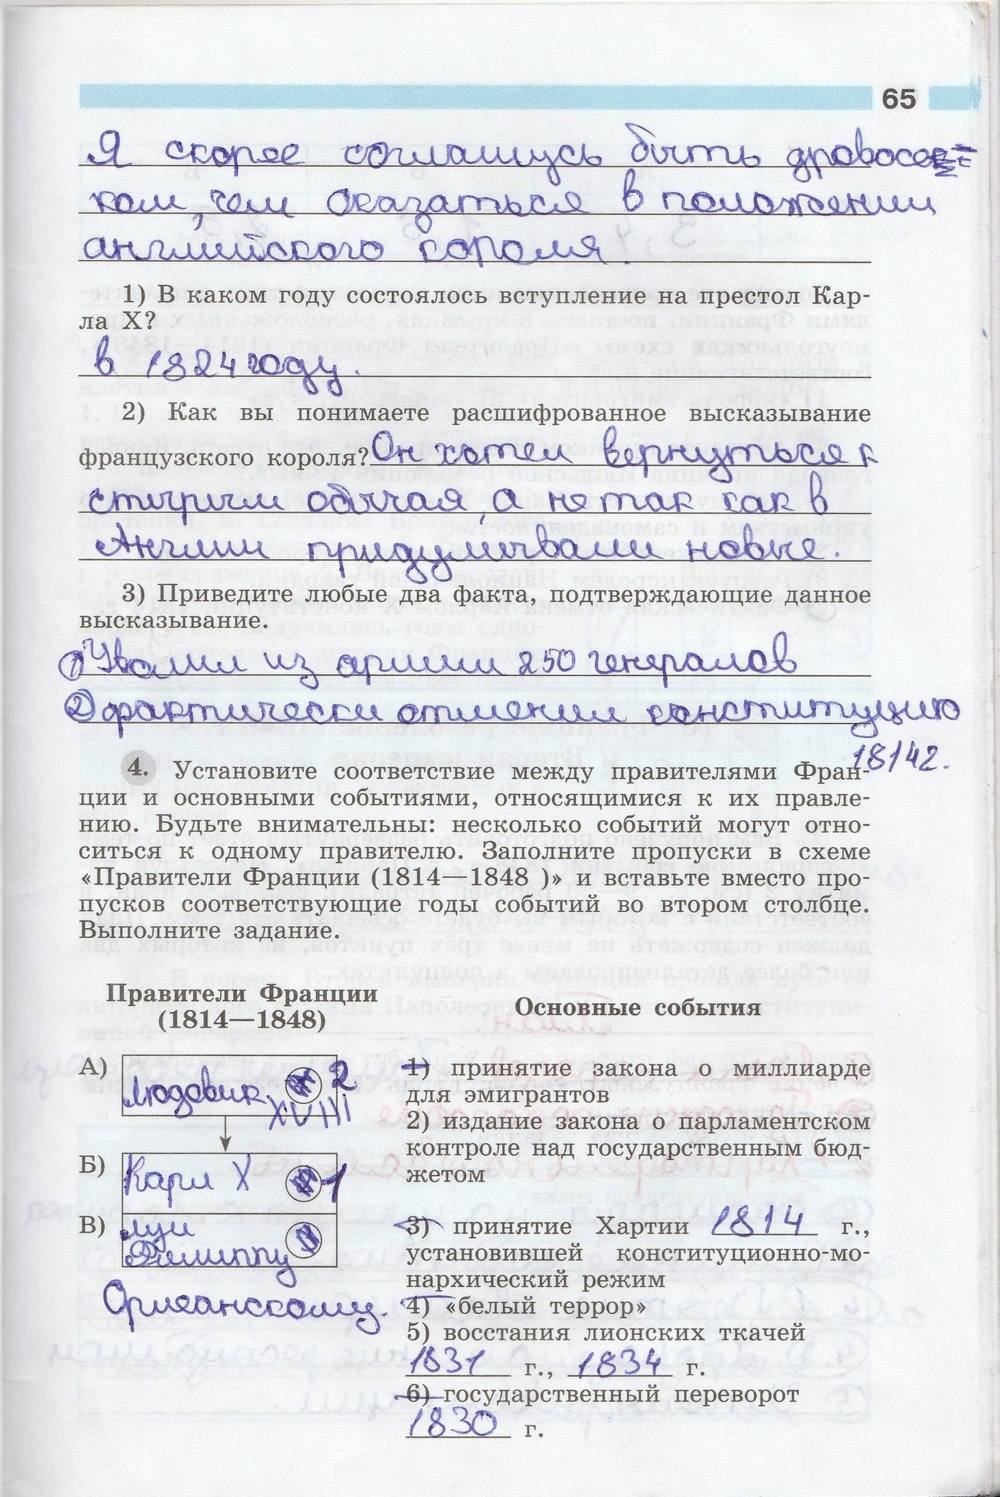 65
Я скорее соглашусь быть дровосе=
ком, чем оказаться в положении
английского короля.
1) В каком году состоялось вступление на престол Кар-
ла X?
в 1824 году.
2) Как вы понимаете расшифрованное высказывание
французского короля? Он хотел вернуться к
старым обычая, а не так как в
Англии придумывали новые.
3) Приведите любые два факта, подтверждающие данное
высказывание.
1) Уволил из армии 250 генералов
2) фактически отменил конституцию
1814г.
4. Установите соответствие между правителями Фран-
ции и основными событиями, относящимися к их правле-
нию. Будьте внимательны: несколько событий могут отно-
ситься к одному правителю. Заполните пропуски в схеме
«Правители Франции (1814—1848 )» и вставьте вместо про-
пусков соответствующие годы событий во втором столбце.
Выполните задание.
Правители Франции
(1814—1848)
А) Людовик 2.
XVIII
Б) Карл X 1
В) Луи
Филиппу
Орлеанскому.
Основные события
1) принятие закона о миллиарде
для эмигрантов
2) издание закона о парламентском
контроле над государственным бюд-
жетом
3) принятие Хартии 1814 г.,
установившей конституционно-мо-
нархический режим
4) «белый террор»
5) восстания лионских ткачей
1831 г., 1834 г.
6) государственный переворот
1830 г.